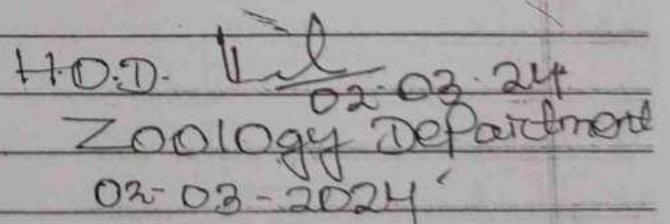 H.O.D.
02.03.24
Zoology Department
02-03-2024